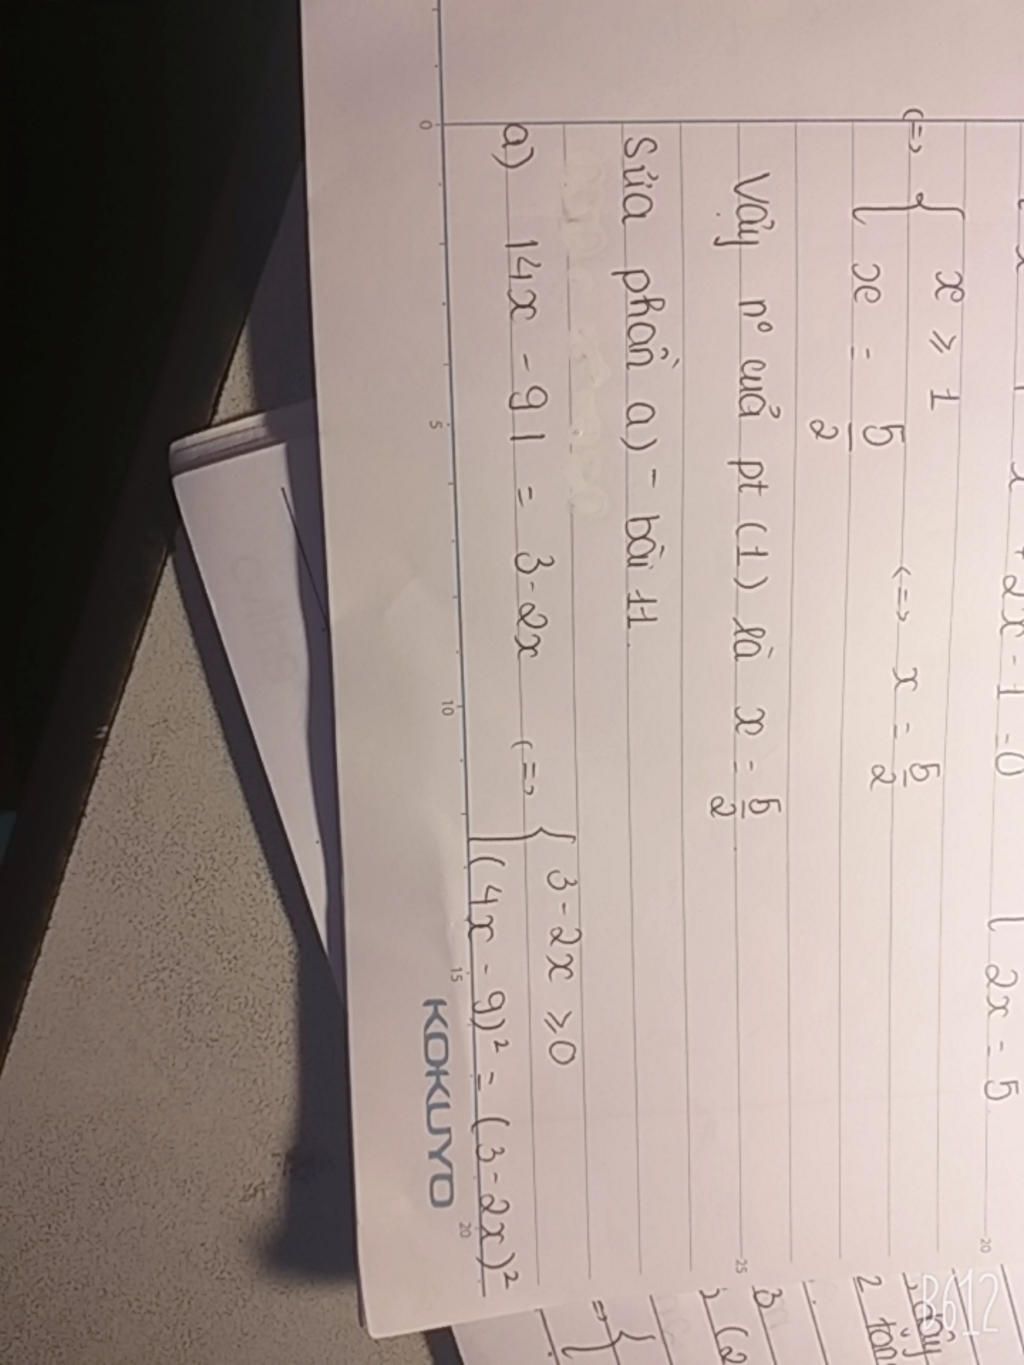 + 2x - 1 = 0
{ 2x = 5
<=> { x ≥ 1
x = 5/2 <=> x = 5/2
Vậy n° cuả pt (1) là x = 5/2
Sửa phần a) - bài 11.
a) |4x - 9| = 3 - 2x <=> { 3 - 2x ≥ 0
(4x - 9)² = (3 - 2x)²
0 5 10 15 20
KOKUYO
20
25
B612